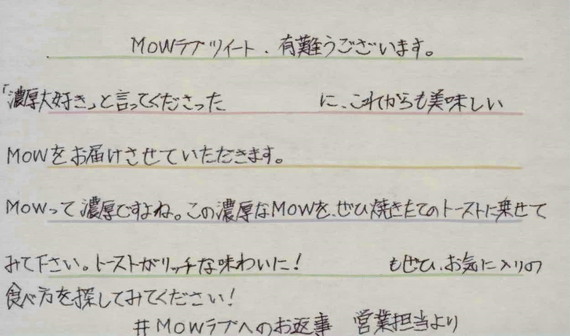 MOWラブツイート、有難うございます。
「濃厚大好き」と言ってくださった に、これからも美味しい
MOWをお届けさせていただきます。
MOWって濃厚ですよね。この濃厚なMOWを、ぜひ焼きたてのトーストに乗せて
みて下さい。トーストがリッチな味わいに! もぜひ、お気に入りの
食べ方を探してみてください!
#MOWラブへのお返事 営業担当より